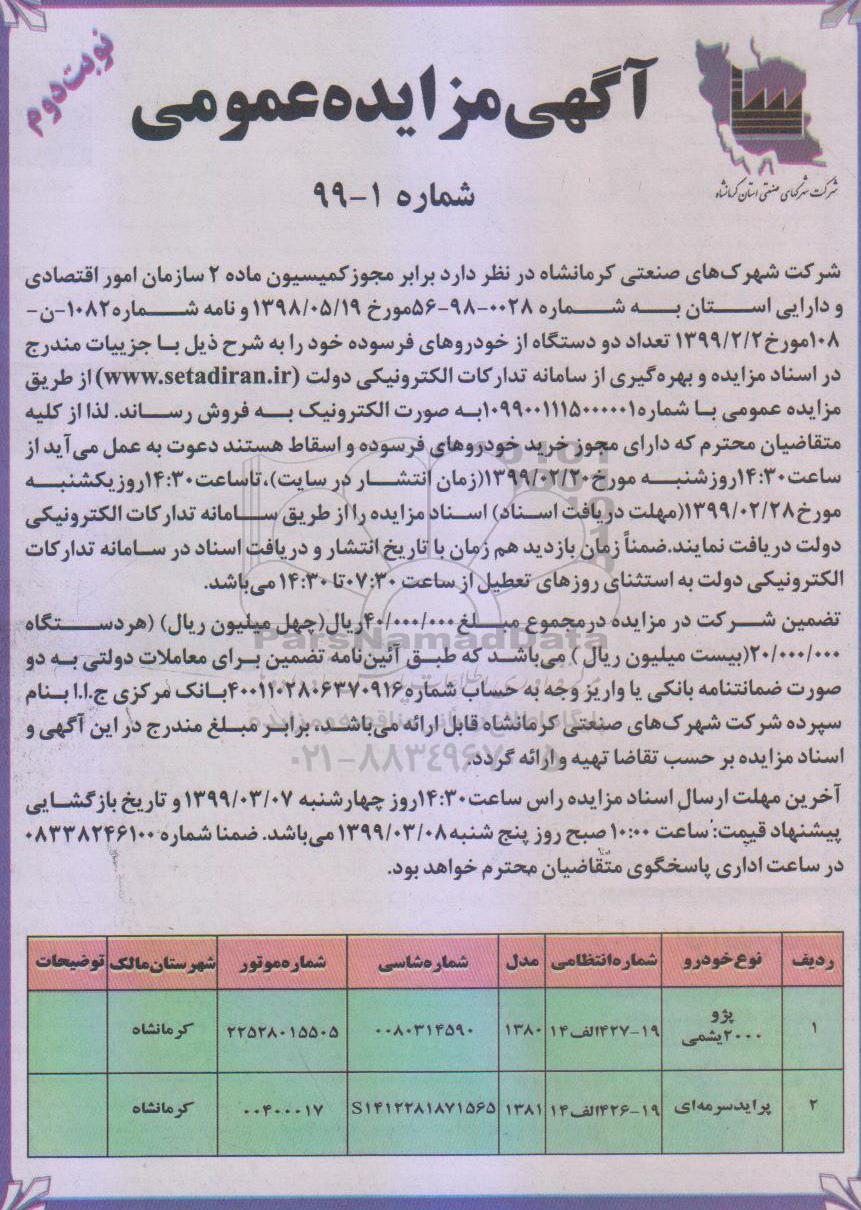 نوبت دوم
آگهی مزایده عمومی
شرکت شهرکهای صنعتی استان کرمانشاه
شماره ۱-۹۹
شرکت شهرک‌های صنعتی کرمانشاه در نظر دارد برابر مجوز کمیسیون ماده ۲ سازمان امور اقتصادی
و دارایی استان به شماره ۰۰۲۸-۹۸-۵۶مورخ ۱۳۹۸/۰۵/۱۹ و نامه شماره۱۰۸۲-ن-
۱۰۸مورخ۱۳۹۹/۲/۲ تعداد دو دستگاه از خودروهای فرسوده خود را به شرح ذیل با جزییات مندرج
در اسناد مزایده و بهره‌گیری از سامانه تدارکات الکترونیکی دولت (www.setadiran.ir) از طریق
مزایده عمومی با شماره۱۰۹۹۰۰۱۱۱۵۰۰۰۰۰۱به صورت الکترونیک به فروش رساند. لذا از کلیه
متقاضیان محترم که دارای مجوز خرید خودروهای فرسوده و اسقاط هستند دعوت به عمل می‌آید از
ساعت۱۴:۳۰روزشنبه مورخ۱۳۹۹/۰۲/۲۰(زمان انتشار در سایت)،تاساعت۱۴:۳۰روزیکشنبه
مورخ۱۳۹۹/۰۲/۲۸(مهلت دریافت اسناد) اسناد مزایده را از طریق سامانه تدارکات الکترونیکی
دولت دریافت نمایند.ضمناً زمان بازدید هم زمان با تاریخ انتشار و دریافت اسناد در سامانه تدارکات
الکترونیکی دولت به استثنای روزهای تعطیل از ساعت ۰۷:۳۰تا ۱۴:۳۰ می‌باشد.
تضمین شرکت در مزایده درمجموع مبلغ۴۰/۰۰۰/۰۰۰ریال(چهل میلیون ریال) (هردستگاه
۲۰/۰۰۰/۰۰۰(بیست میلیون ریال ) می‌باشد که طبق آئین‌نامه تضمین برای معاملات دولتی به دو
صورت ضمانتنامه بانکی یا واریز وجه به حساب شماره۴۰۰۱۱۰۲۸۰۶۳۷۰۹۱۶بانک مرکزی ج.ا.ا بنام
سپرده شرکت شهرک‌های صنعتی کرمانشاه قابل ارائه می‌باشد، برابر مبلغ مندرج در این آگهی و
اسناد مزایده بر حسب تقاضا تهیه و ارائه گردد.
آخرین مهلت ارسال اسناد مزایده راس ساعت۱۴:۳۰روز چهارشنبه ۱۳۹۹/۰۳/۰۷ و تاریخ بازگشایی
پیشنهاد قیمت: ساعت ۱۰:۰۰ صبح روز پنج شنبه۱۳۹۹/۰۳/۰۸ می‌باشد. ضمنا شماره ۰۸۳۳۸۲۴۶۱۰۰
در ساعت اداری پاسخگوی متقاضیان محترم خواهد بود.
ParsNamadData
۰۲۱-۸۸۳۴۹۶۷۰-۵
ردیف نوع خودرو شماره‌انتظامی مدل شماره‌شاسی شماره‌موتور شهرستان‌مالک توضیحات
۱ پژو ۲۰۰۰یشمی ۱۹-۴۲۷الف۱۴ ۱۳۸۰ ۰۰۸۰۳۱۴۵۹۰ ۲۲۵۲۸۰۱۵۵۰۵ کرمانشاه
۲ پرایدسرمه‌ای ۱۹-۴۲۶الف۱۴ ۱۳۸۱ S۱۴۱۲۲۸۱۸۷۱۵۶۵ ۰۰۴۰۰۰۱۷ کرمانشاه